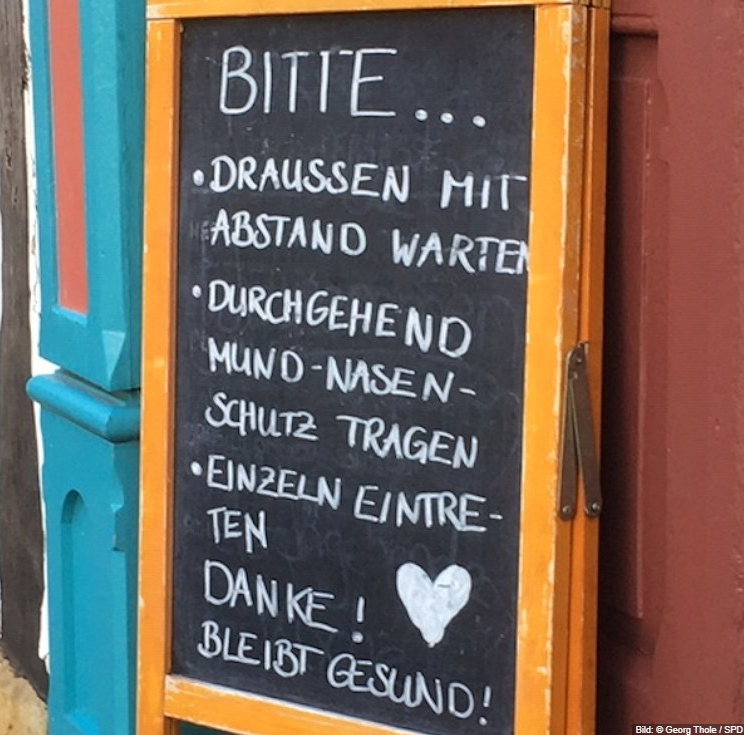 BITTE...
• DRAUSSEN MIT
ABSTAND WARTEN
• DURCHGEHEND
MUND-NASEN-
SCHUTZ TRAGEN
• EINZELN EINTRE-
TEN
DANKE!
BLEIBT GESUND!
Bild: © Georg Thole / SPD